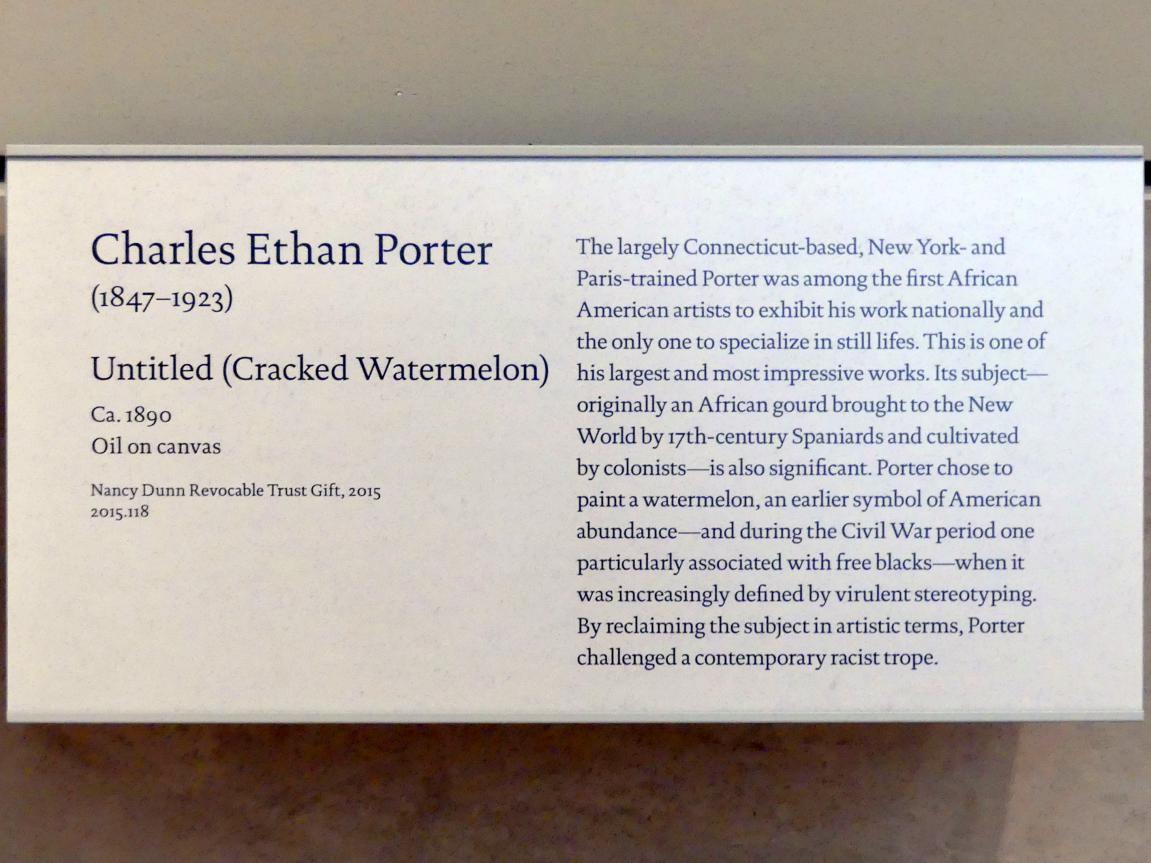 Charles Ethan Porter
(1847–1923)
Untitled (Cracked Watermelon)
Ca. 1890
Oil on canvas
Nancy Dunn Revocable Trust Gift, 2015
2015.118
The largely Connecticut-based, New York- and
Paris-trained Porter was among the first African
American artists to exhibit his work nationally and
the only one to specialize in still lifes. This is one of
his largest and most impressive works. Its subject—
originally an African gourd brought to the New
World by 17th-century Spaniards and cultivated
by colonists—is also significant. Porter chose to
paint a watermelon, an earlier symbol of American
abundance—and during the Civil War period one
particularly associated with free blacks—when it
was increasingly defined by virulent stereotyping.
By reclaiming the subject in artistic terms, Porter
challenged a contemporary racist trope.